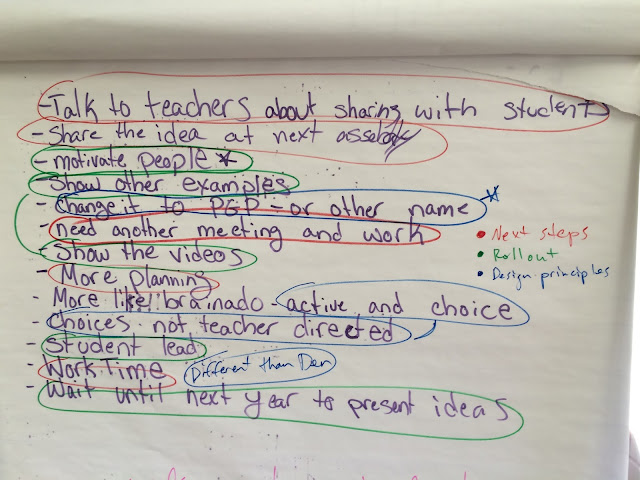 - Talk to teachers about sharing with student
- Share the idea at next
- motivate people *
- Show other examples
- Change it to PGP - or other name *
- need another meeting and work
- Show the videos
- More planning
- More like brainado - active and choice
- Choices not teacher directed
- Student lead
- Work Time Different than Den
- Wait until next year to present ideas
• Next steps
• Rollout
• Design principles